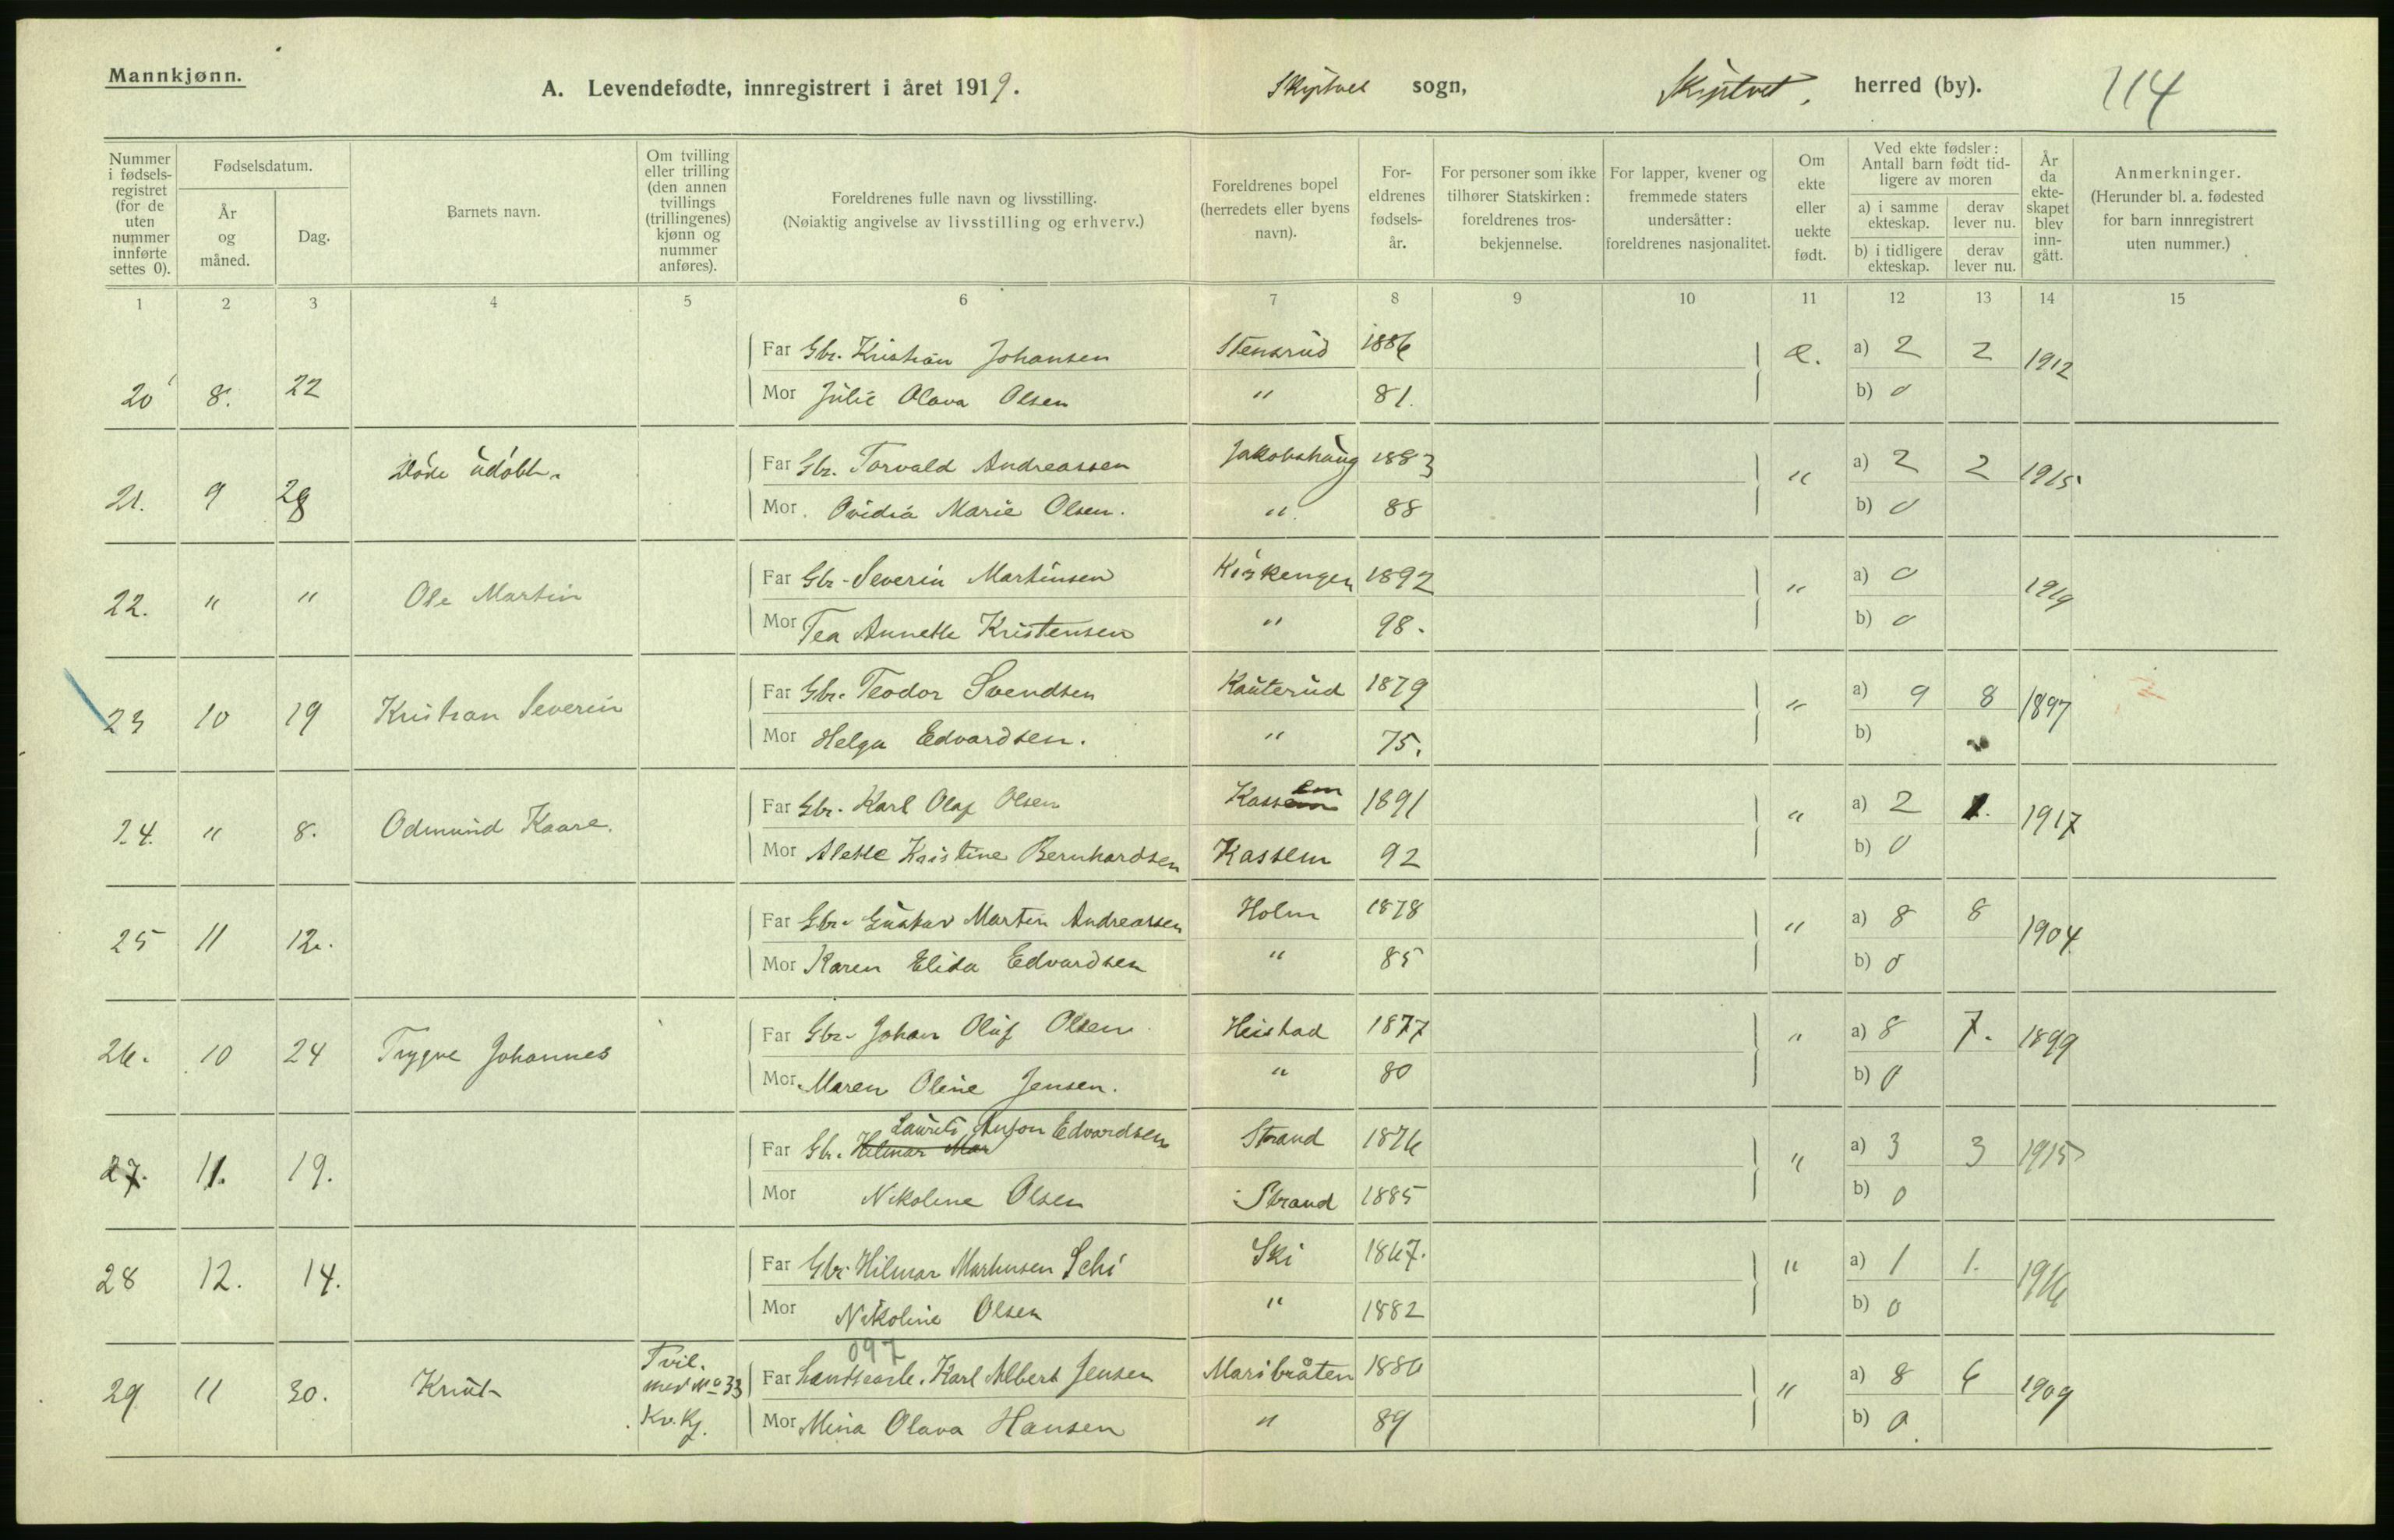 Mannkjønn.
A. Levendefødte, innregistrert i året 1919.
Skiptvet sogn,
Skiptvet, herred (by).
114
Nummer i fødselsregistret (for de uten nummer innførte settes 0).
Fødselsdatum.
År og måned.
Dag.
Barnets navn.
Om tvilling eller trilling (den annen tvillings (trillingenes) kjønn og nummer anføres).
Foreldrenes fulle navn og livsstilling.
(Nøiaktig angivelse av livsstilling og erhverv.)
Foreldrenes bopel (herredets eller byens navn).
Foreldrenes fødselsår.
For personer som ikke tilhører Statskirken: foreldrenes trosbekjennelse.
For lapper, kvener og fremmede staters undersåtter: foreldrenes nasjonalitet.
Om ekte eller uekte født.
Ved ekte fødsler: Antall barn født tidligere av moren
a) i samme ekteskap.
derav lever nu.
b) i tidligere ekteskap.
derav lever nu.
År da ekteskapet blev inngått.
Anmerkninger.
(Herunder bl. a. fødested for barn innregistrert uten nummer.)
1 2 3 4 5 6 7 8 9 10 11 12 13 14 15
Far Gbr. Kristian Johansen Stensrud 1886 e. a) 2 2 1912
20 8. 22
Mor Julie Olava Olsen " 81. b) 0
Døde udøbt.
Far Gbr. Torvald Andreassen Jakobshaug 1883 " a) 2 2 1915
21. 9 28
Mor Ovidia Marie Olsen. " 88 b) 0
Far Gbr. Severin Martinsen Kirkengen 1892 " a) 0 1919
22. " " Ole Martin
Mor Tea Annette Kristensen " 98. b) 0
Far Gbr. Teodor Svendsen Kauterud 1879 " a) 9 8 1897
23 10 19 Kristian Severin
Mor Helga Edvardsen. " 75. b)
Far Gbr. Karl Olaf Olsen Kassem 1891 " a) 2 1. 1917
24. " 8. Odmund Kaare.
Mor Alette Kristine Bernhardsen Kassem 92 b) 0
Far Gbr. Gustav Martin Andreassen Holm 1878 " a) 8 8 1904
25 11 12.
Mor Karen Elida Edvardsen " 85 b) 0
Far Gbr. Johan Oluf Olsen Heistad 1877 " a) 8 7. 1899
26. 10 24 Trygve Johannes
Mor Maren Oline Jensen. " 80 b) 0
Laurits Anton Edvardsen
Far Gbr. Hilmar Mar Strand 1876 " a) 3 3 1915
27. 11. 19.
Mor Nikoline Olsen Strand 1885 b) 0
Far Gbr. Hilmar Markusen Schi Ski 1867. " a) 1 1. 1916
28 12. 14.
Mor Nikoline Olsen " 1882 b) 0
097
Tvil. med No 33 Kv. kj.
Far Karl Albert Jensen Maribråten 1886 " a) 8 6 1909
29 11 30. Knut
Mor Mina Olava Hansen " 89 b) 0